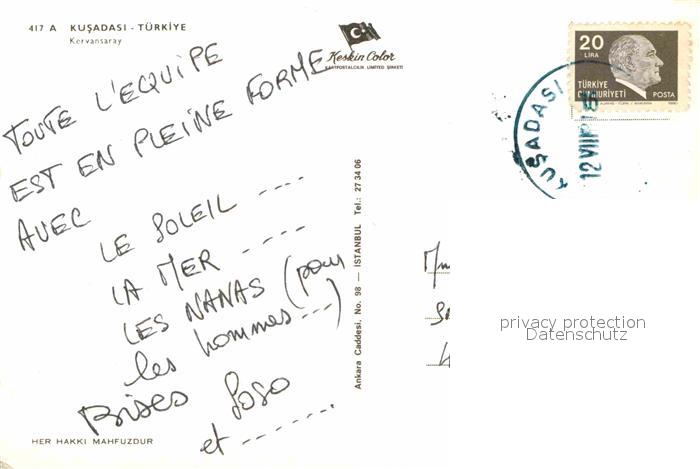 417 A KUŞADASI - TÜRKİYE
Kervansaray
Keskin Color
KARTPOSTALCILIK LIMITED ŞIRKETI
20
LIRA
TÜRKİYE
CUMHURİYETİ
POSTA
KUŞADASI
TOUTE L'EQUIPE
EST EN PLEINE FORME
AVEC
LE SOLEIL ----
LA MER ----
LES NANAS (pour
les hommes ---)
Bises Soso
et -------
Ankara Caddesi, No. 98 — ISTANBUL Tel.: 27 34 06
privacy protection
Datenschutz
HER HAKKI MAHFUZDUR